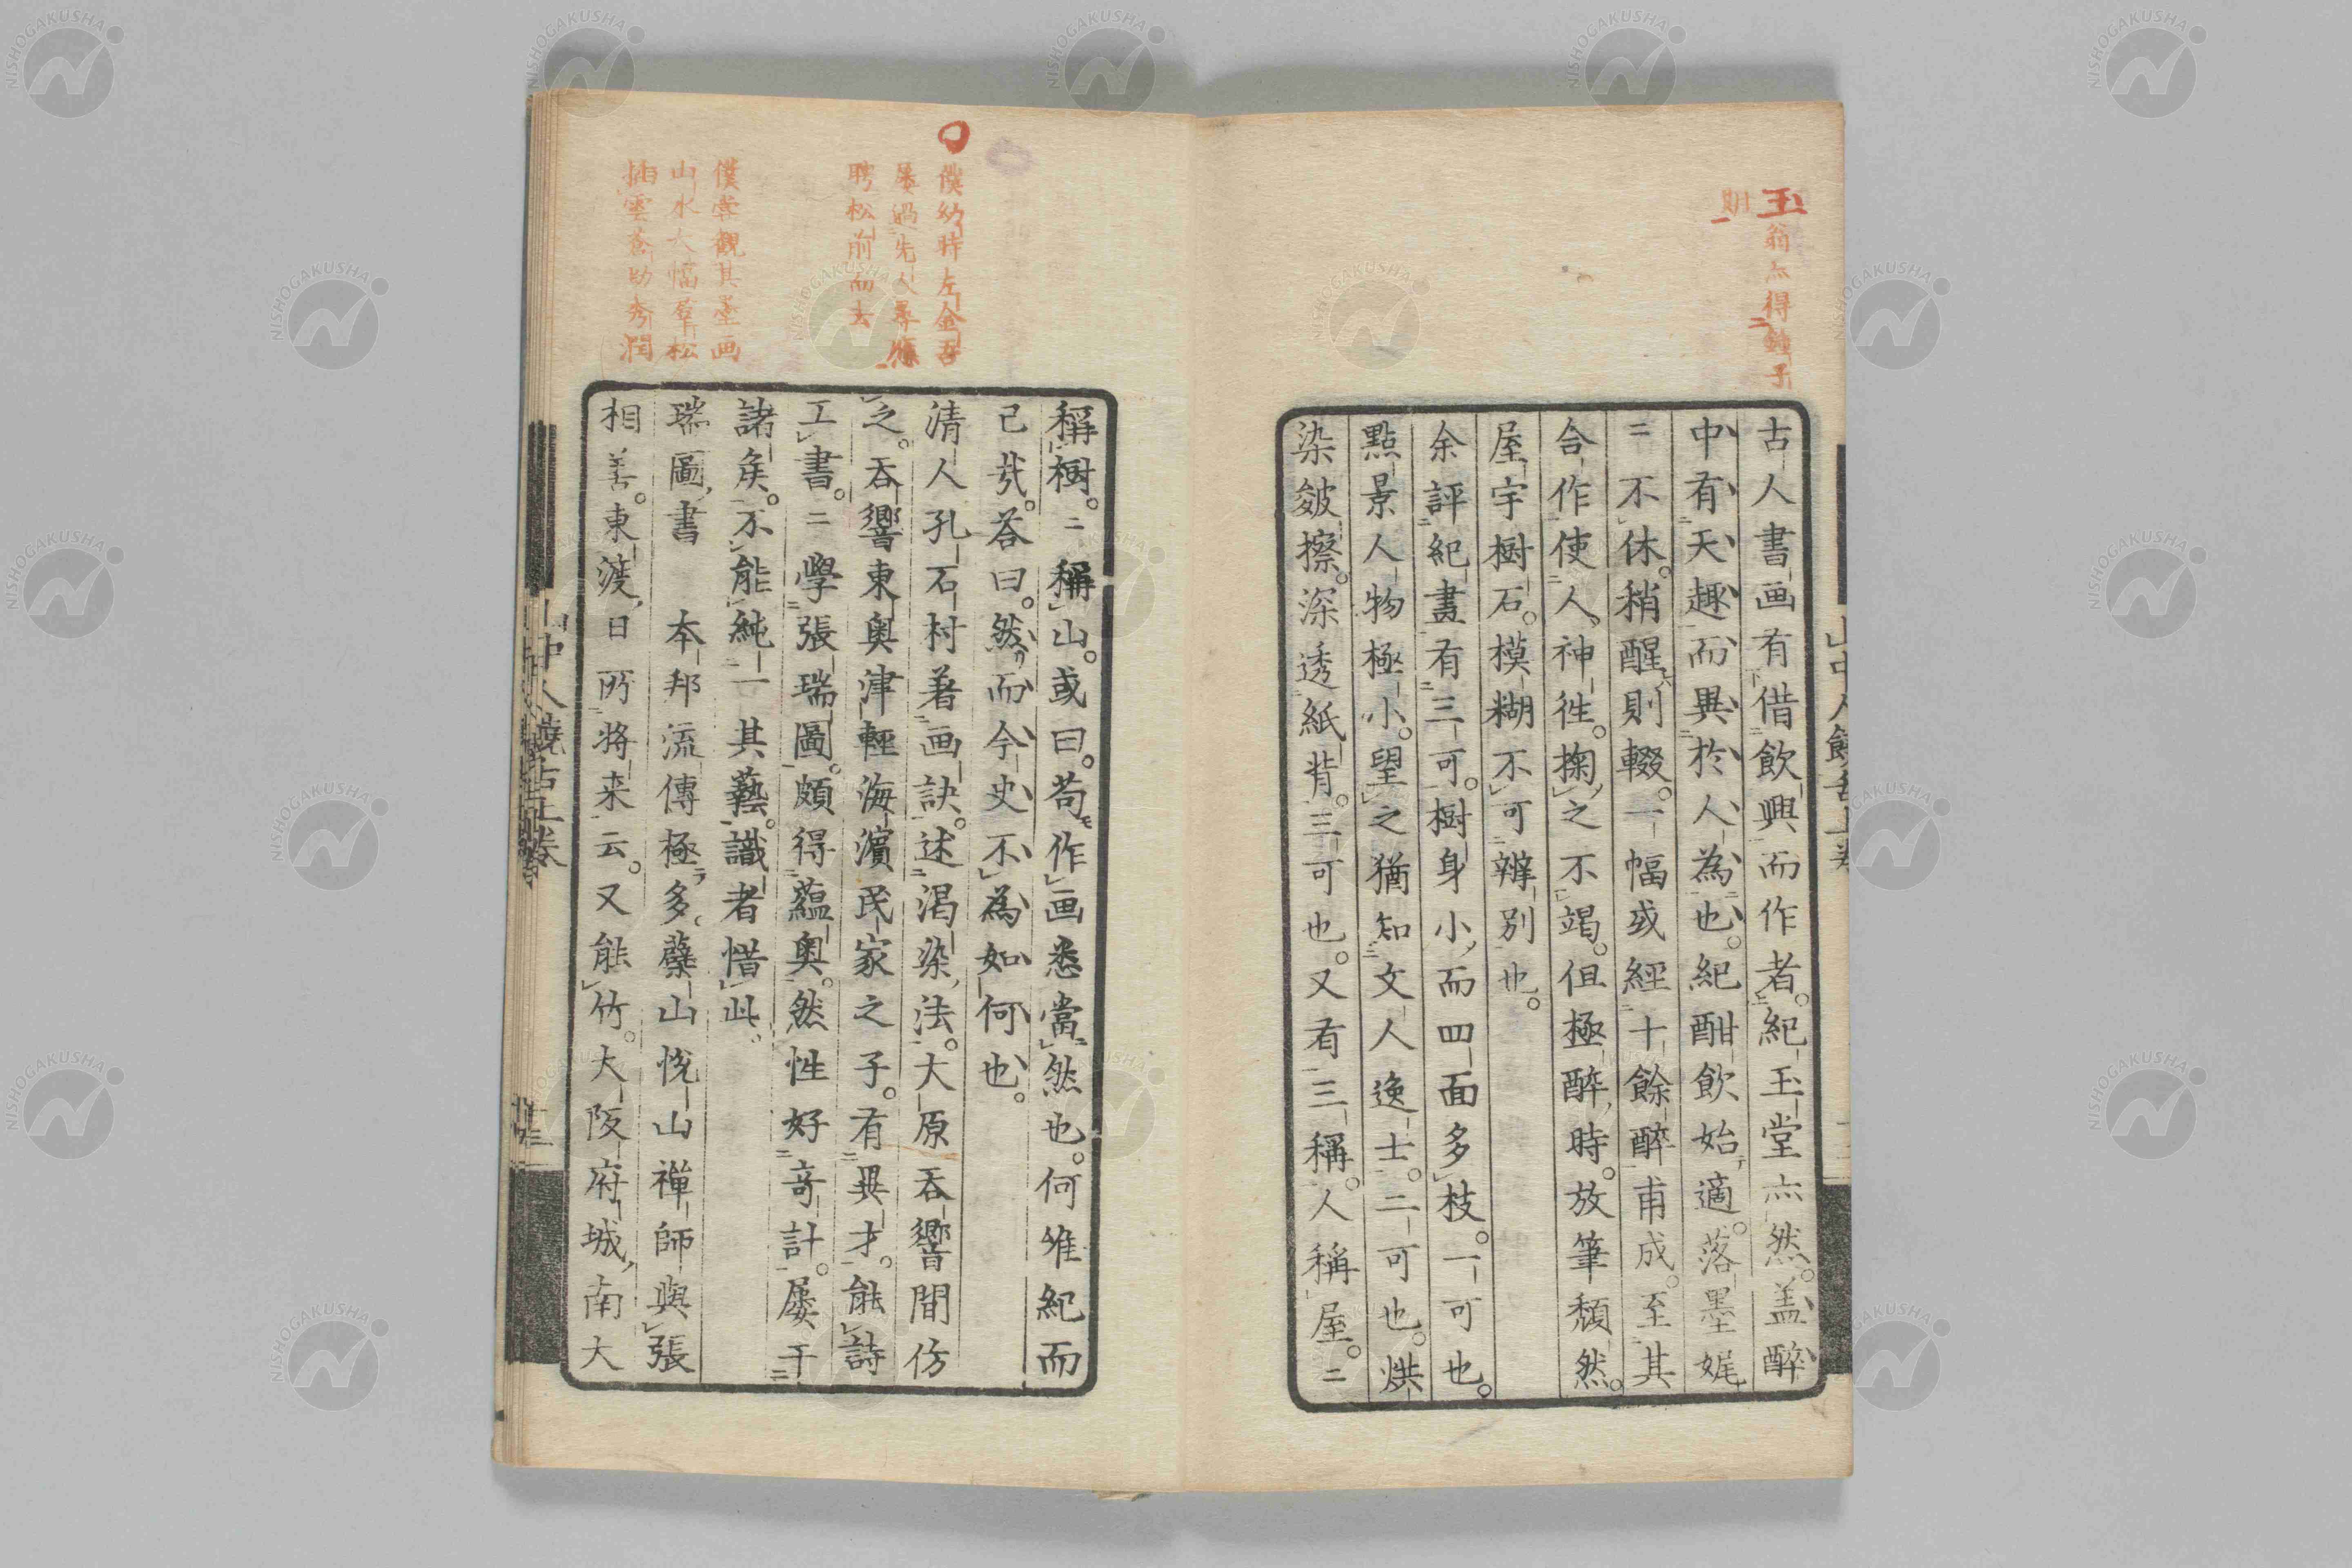 玉翁亦得鍾子
則
古人書画有借飲興而作者。紀玉堂亦然。盖醉
中有天趣而異於人為也。紀酣飲始適。落墨娓
二不休。稍醒則輟。一幅或經十餘醉甫成。至其
合作使人神徃。掬之不竭。但極醉時。放筆頽然。
屋宇樹石。模糊不可辨別也。
余評紀畫有三可。樹身小而四面多枝。一可也。
點景人物極小。望之猶知文人逸士。二可也。烘
染皴擦。深透紙背。三可也。又有三稱。人稱屋。二
僕幼時左金吾
屡過先人尋
聘松前而去
僕嘗觀其墨画
山水大幅群松
插雲蒼勁秀潤
稱樹。二稱山。或曰。苟作画悉當然也。何唯紀而
已哉。答曰。然而今史不為如何也。
清人孔石村著画訣。述渇染法。大原吞響間仿
之。吞響東奥津輕海濱民家之子。有異才。能詩
工書。二學張瑞圖。頗得蘊奥。然性好竒計。屡干
諸矦。不能純一其藝。識者惜此。
瑞圖書 本邦流傳極多。蘗山悅山禅師與張
相善。東渡日所将来云。又能竹。大阪府城南大
山中人饒舌上卷
山中人饒舌上卷
NISHOGAKUSHA